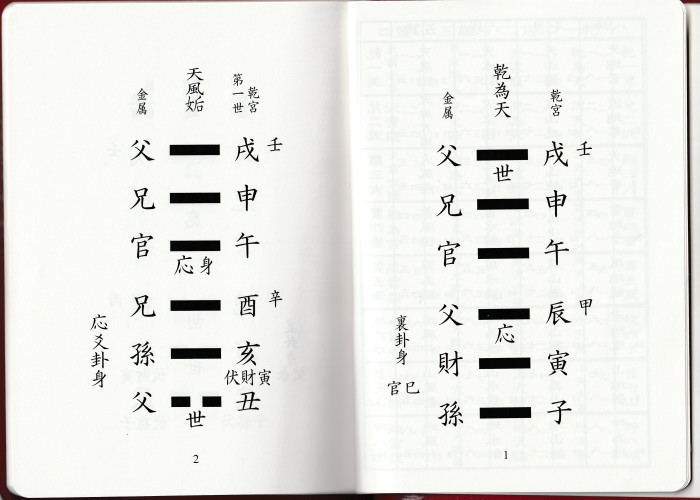 乾為天
乾宮
金属
父 戌 壬
世
兄 申
官 午
父 辰 甲
応
財 寅
孫 子
裏卦身
官巳
1
天風姤
乾宮
第一世
金属
父 戌 壬
兄 申
官 午
応 身
兄 酉 辛
孫 亥
伏財寅
父 丑
世
応爻卦身
2